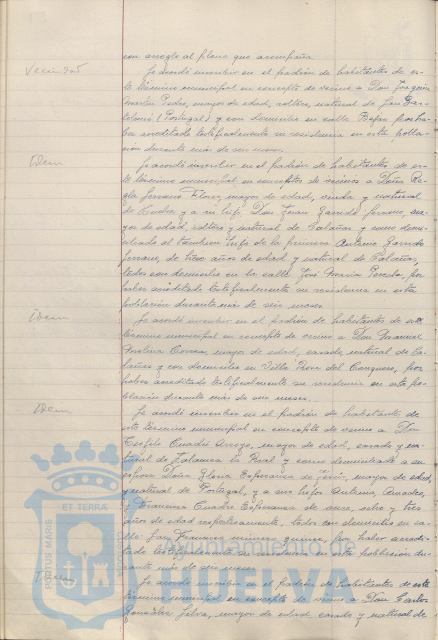 con arreglo al plano que acompaña.
Vecindad
Se acordó inscribir en el padrón de habitantes de es-
te término municipal en concepto de vecino a Don Joaquín
Martín Pedro, mayor de edad, soltero, natural de San Bar-
tolomé (Portugal) y con domicilio en calle por ha-
ber acreditado testificalmente su residencia en esta pobla-
ción durante más de seis meses.
Idem
Se acordó inscribir en el padrón de habitantes de es-
te término municipal en conceptos de vecinos a Doña Re-
gla Serrano Flores, mayor de edad, viuda y natural
de y a su hijo Don Juan Garrido Serrano, ma-
yor de edad, soltero y natural de Calañas y como domi-
ciliado al también hijo de la primera Antonio Garrido
Serrano, de trece años de edad y natural de Calañas,
todos con domicilio en la calle José María Pereda, por
haber acreditado testificalmente su residencia en esta
población durante más de seis meses.
Idem
Se acordó inscribir en el padrón de habitantes de este
término municipal en concepto de vecino a Don Manuel
Correa, mayor de edad, casado, natural de Ca-
lañas y con domicilio en Villa Rosa del Conquero, por
haber acreditado testificalmente su residencia en esta po-
blación durante más de seis meses.
Idem
Se acordó inscribir en el padrón de habitantes de
este término municipal en concepto de vecino a Don
Teófilo Cuadri Arroyo, mayor de edad, casado y na-
tural de Talavera la Real y como domiciliado a su
esposa Doña Gloria Esperanza de mayor de edad,
y natural de Portugal, y a sus hijos Antonio, Amadeo,
y Francisca Cuadri Esperanza de once, ocho y tres
años de edad respectivamente, todos con domicilio en ca-
lle San Francisco número quince, por haber acredi-
tado testificalmente su residencia en esta población du-
rante más de seis meses.
Idem
Se acordó inscribir en el padrón de habitantes de este
término municipal en concepto de vecino a Don Carlos
González Silva, mayor de edad, casado y natural de
PORTUS MARIS
ET TERRAE
Ayuntamiento de
HUELVA